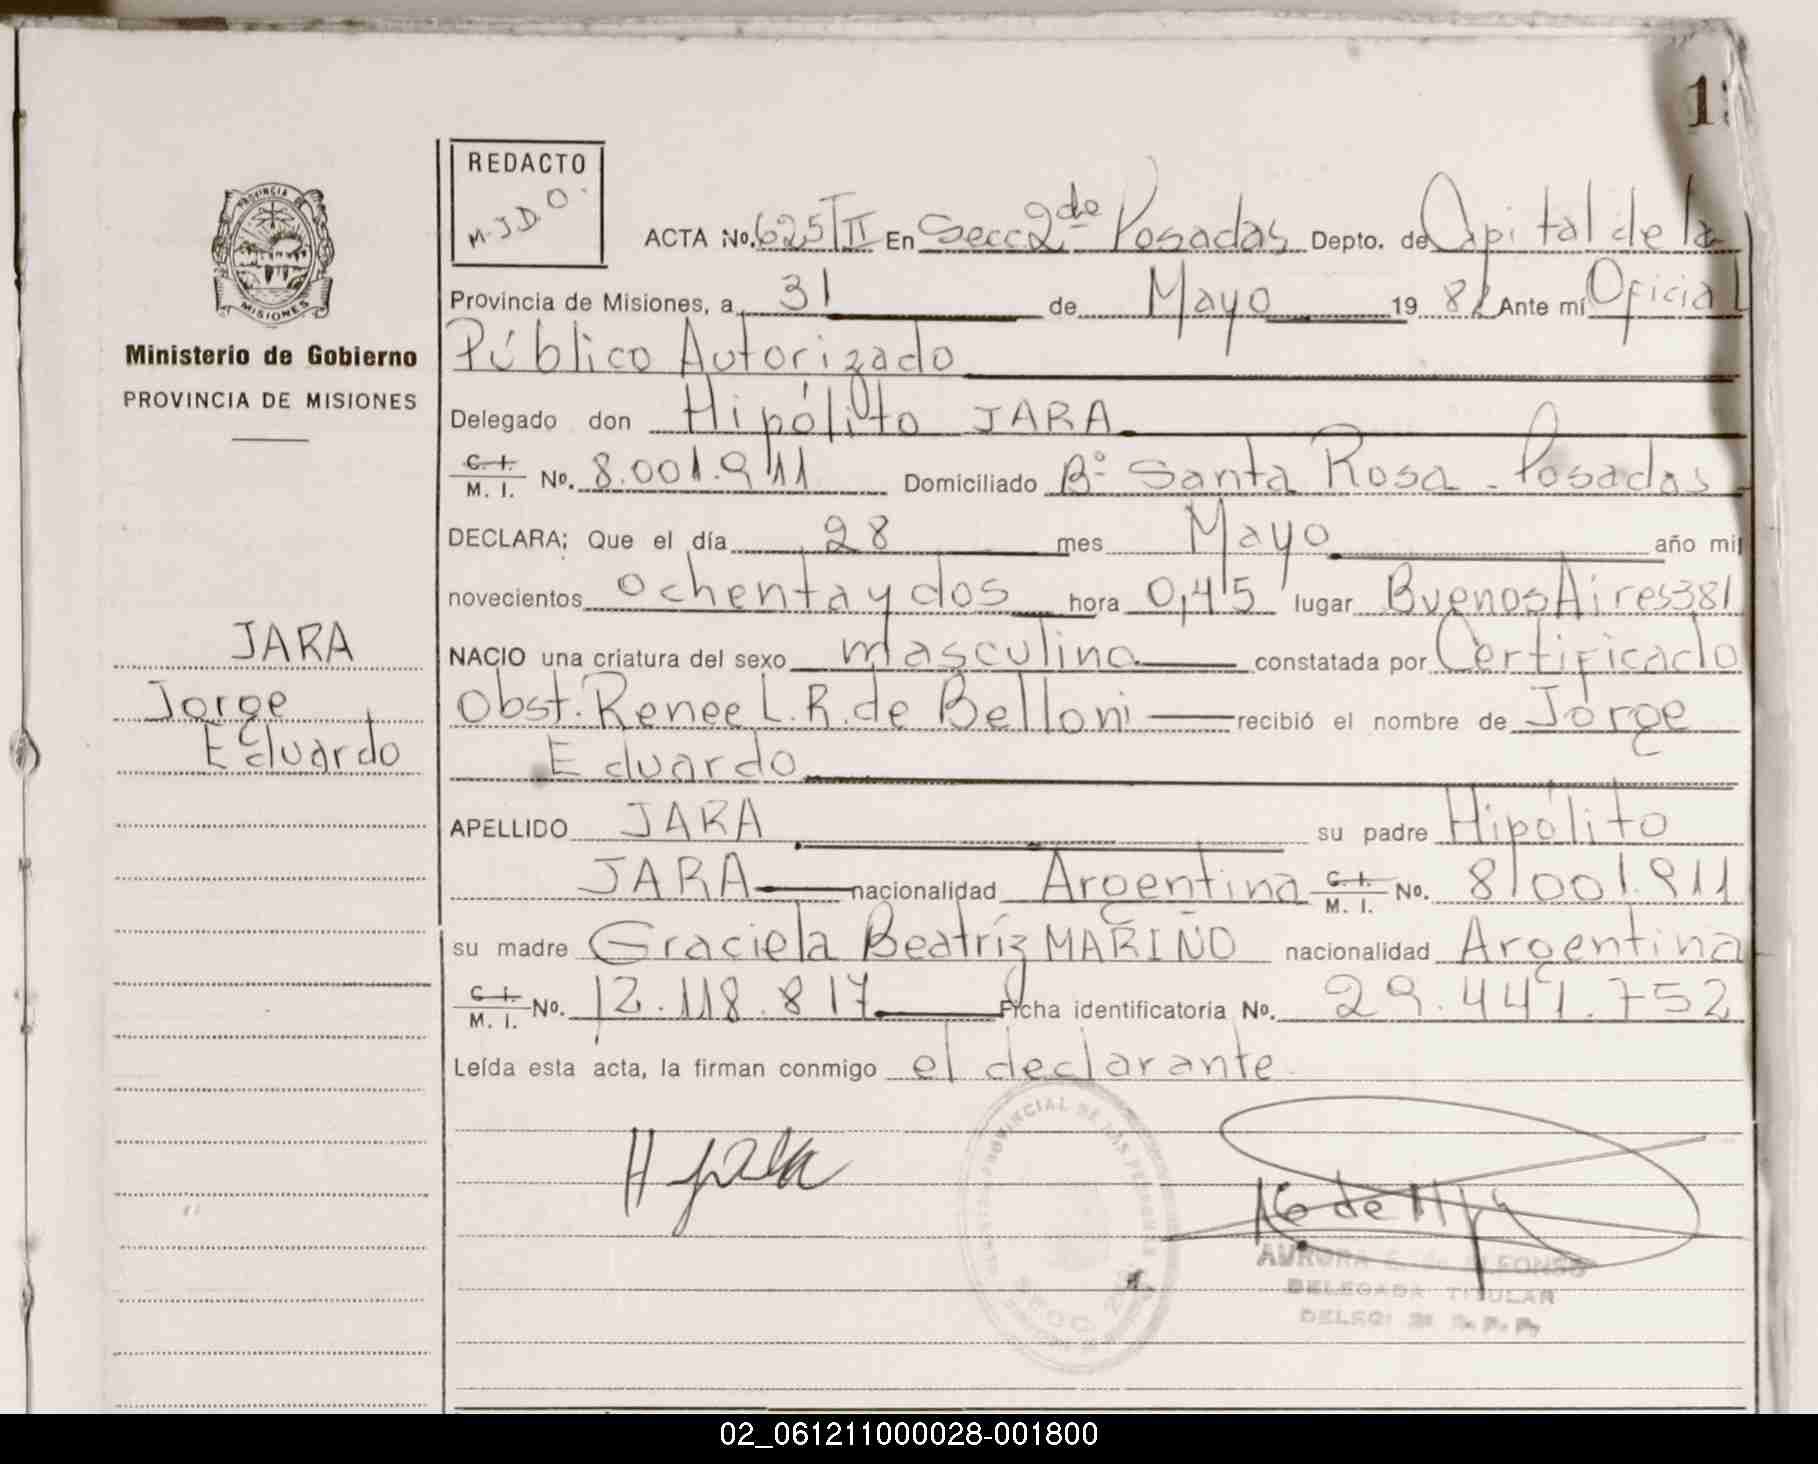 1
REDACTO
M.J.D.O.
PROVINCIA DE
MISIONES
Ministerio de Gobierno
PROVINCIA DE MISIONES
JARA
Jorge
Eduardo
ACTA No. 625 TII En Secc 2da Posadas Depto. de Capital de la
Provincia de Misiones, a 31 de Mayo 19 82 Ante mí Oficial
Público Autorizado
Delegado don Hipólito JARA
C. I. M. I. No. 8.001.911 Domiciliado Bº Santa Rosa - Posadas
DECLARA; Que el día 28 mes Mayo año mil
novecientos ochenta y dos hora 0,45 lugar Buenos Aires 381
NACIO una criatura del sexo masculino constatada por Certificado
Obst. Renee L. R. de Belloni recibió el nombre de Jorge
Eduardo
APELLIDO JARA su padre Hipólito
JARA nacionalidad Argentina C. I. M. I. No. 8.001.911
su madre Graciela Beatríz MARIÑO nacionalidad Argentina
C. I. M. I. No. 12.118.817 Ficha identificatoria No. 29.447.752
Leída esta acta, la firman conmigo el declarante.
H Jara
AURORA de ALFONSO
DELEGADA TITULAR
02_061211000028-001800